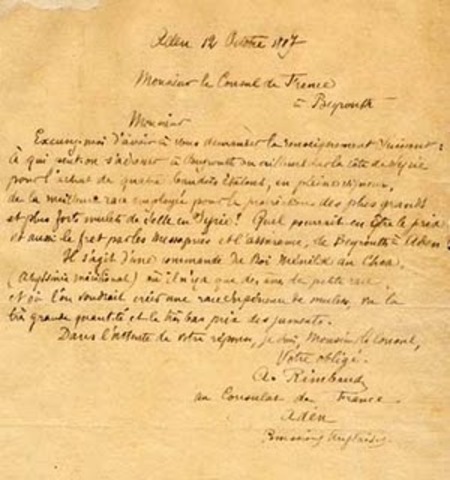 Aden 12 Octobre 1887
Monsieur le Consul de France
à Beyrouth
Monsieur
Excusez-moi d'avoir à vous demander le renseignement suivant :
à qui peut-on s'adresser à Beyrouth ou ailleurs sur la côte de Syrie
pour l'achat de quatre baudets étalons, en pleine vigueur,
de la meilleure race employée pour la procréation des plus grands
et plus forts mulets de selle en Syrie ? Quel pourrait en être le prix
et aussi le fret par les Messageries et l'assurance, de Beyrouth à Aden ?
Il s'agit d'une commande du Roi Ménélik au Choa
(Abyssinie méridional) où il n'y a que des ânes de petite race
et où l'on voudrait créer une race supérieure de mulets, vu la
très grande quantité et le très bas prix des juments.
Dans l'attente de votre réponse, je suis, Monsieur le Consul,
Votre obligé.
A. Rimbaud
au Consulat de France
Aden
Possessions Anglaises